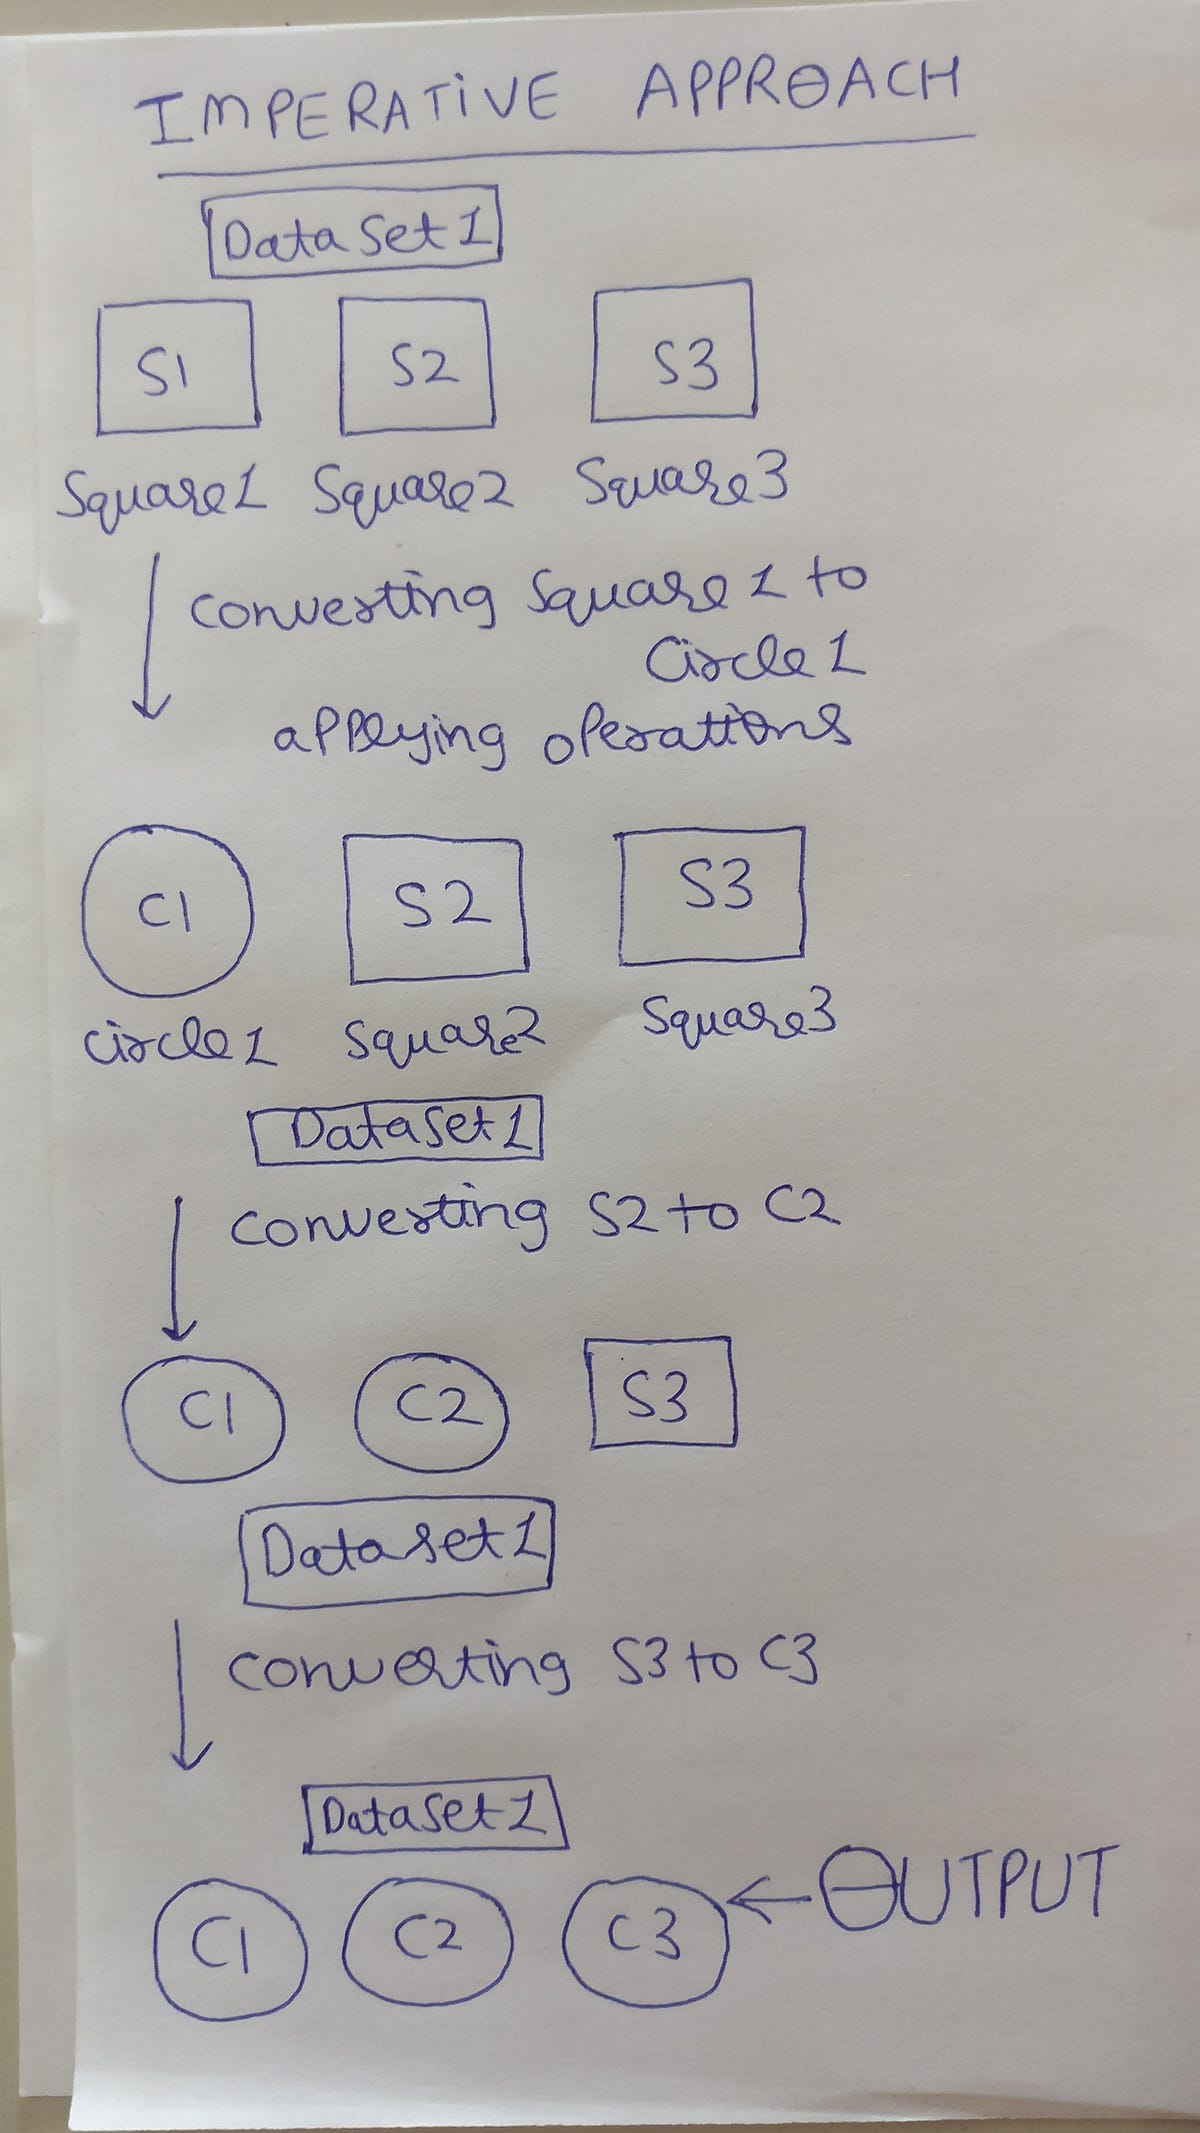 IMPERATIVE APPROACH
Data Set 1
S1 S2 S3
Square1 Square2 Square3
Converting Square 1 to
Circle 1
applying operations
C1 S2 S3
circle 1 Square2 Square3
DataSet1
Converting S2 to C2
C1 C2 S3
Dataset1
Converting S3 to C3
DataSet1
C1 C2 C3 ← OUTPUT